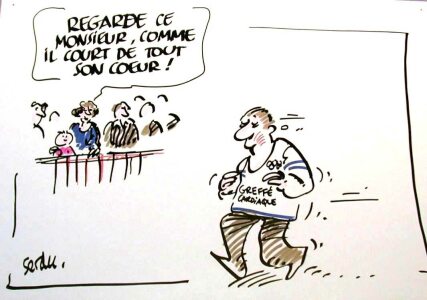 REGARDE CE
MONSIEUR, COMME
IL COURT DE TOUT
SON COEUR !
GREFFÉ
CARDIAQUE
serdu.